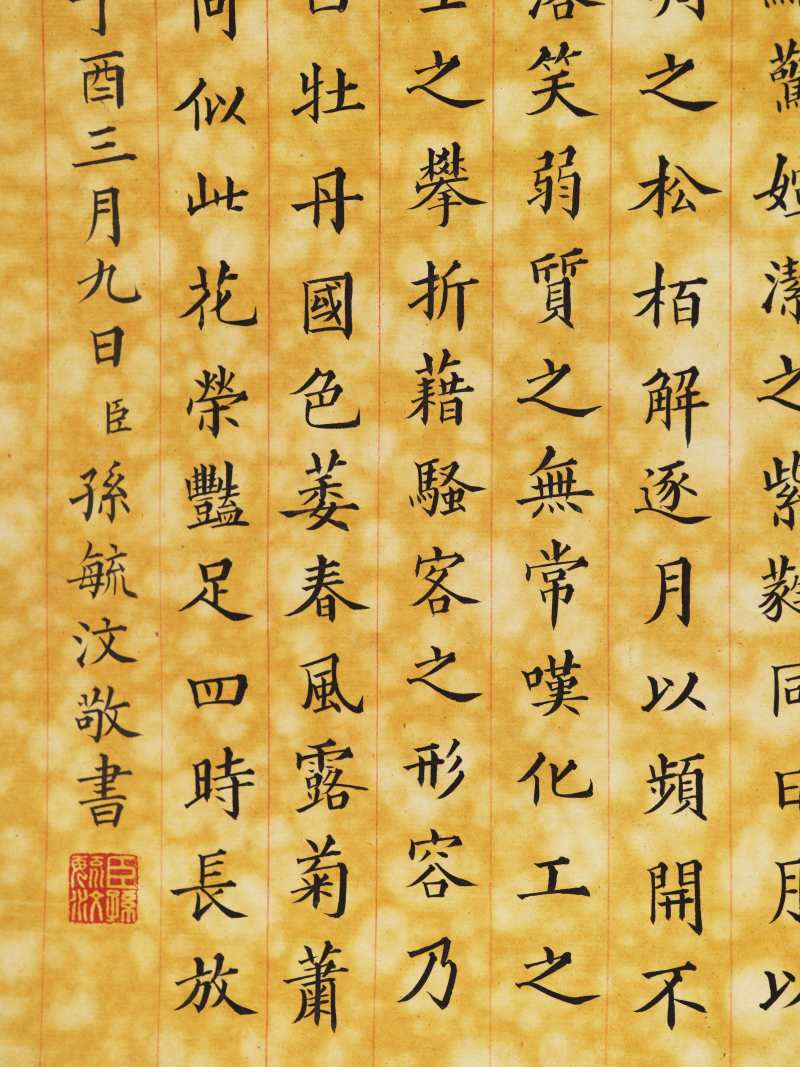 驚潔之紫同日月以
之松栢解逐月以頻開不
落笑弱質之無常嘆化工之
之攀折藉騷客之形容乃
牡丹國色萎春風露菊蕭
何似此花榮豔足四時長放
丁酉三月九日臣孫毓汶敬書
臣孫毓汶